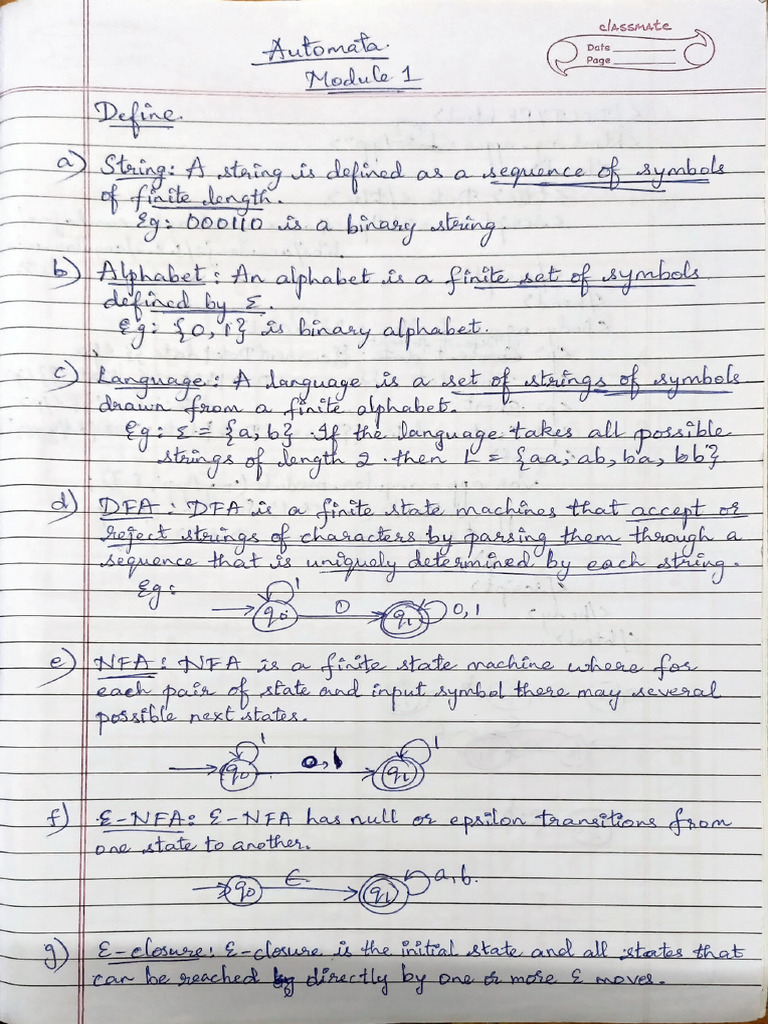 classmate
Date
Page
Automata.
Module 1
Define.
a) String: A string is defined as a sequence of symbols
of finite length.
Eg: 000110 is a binary string.
b) Alphabet: An alphabet is a finite set of symbols
defined by Σ.
Eg: {0, 1} is binary alphabet.
c) Language: A language is a set of strings of symbols
drawn from a finite alphabet.
Eg: Σ = {a, b}. If the language takes all possible
strings of length 2. then L = {aa, ab, ba, bb}
d) DFA: DFA is a finite state machines that accept or
reject strings of characters by parsing them through a
sequence that is uniquely determined by each string.
Eg:
1
q0 0 q1 0,1
e) NFA: NFA is a finite state machine where for
each pair of state and input symbol there may several
possible next states.
1 1
q0 0,1 q1
f) ε-NFA: ε-NFA has null or epsilon transitions from
one state to another.
q0 ε q1 a,b.
g) ε-closure: ε-closure is the initial state and all states that
can be reached directly by one or more ε moves.